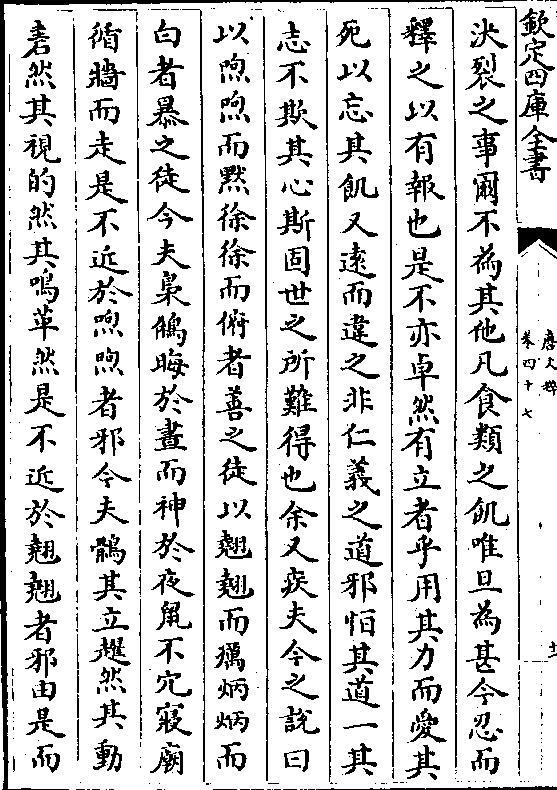 欽定四庫全書
唐文粹
卷四十七
決裂之事爾不為其他凡食類之飢唯旦為甚今忍而
釋之以有報也是不亦卓然有立者乎用其力而愛其
死以忘其飢又遠而違之非仁義之道邪恒其道一其
志不欺其心斯固世之所難得也余又疾夫今之說曰
以喣喣而黙徐徐而俯者善之徒以翹翹而厲炳炳而
白者暴之徒今夫梟鵂晦於晝而神於夜䑕不穴寢廟
循牆而走是不近於喣喣者邪今夫鶻其立趯然其動
砉然其視的然其鳴革然是不近於翹翹者邪由是而